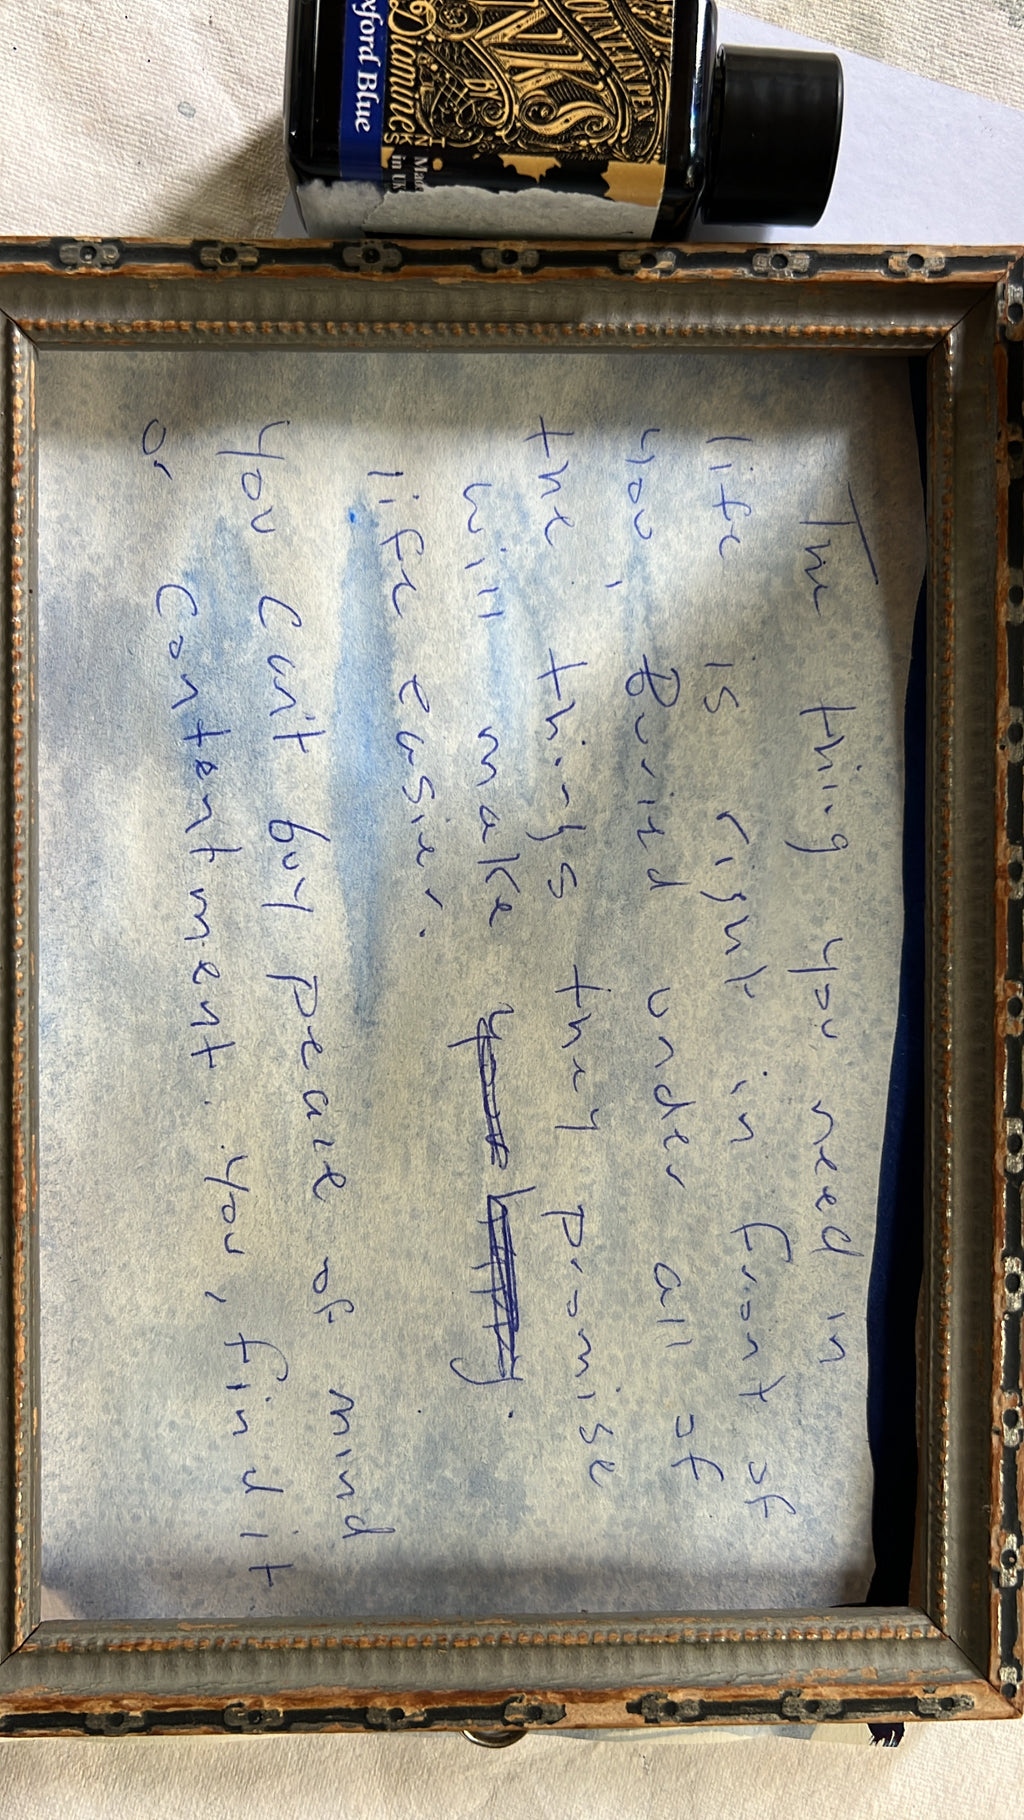 FOUNTAIN PEN
INKS
Diamine
INKS
Made
in UK
xford Blue
The thing you need in
life is right in front of
you, Buried under all of
the things they promise
will make
life easier.
you can't buy peace of mind
or contentment. you, find it